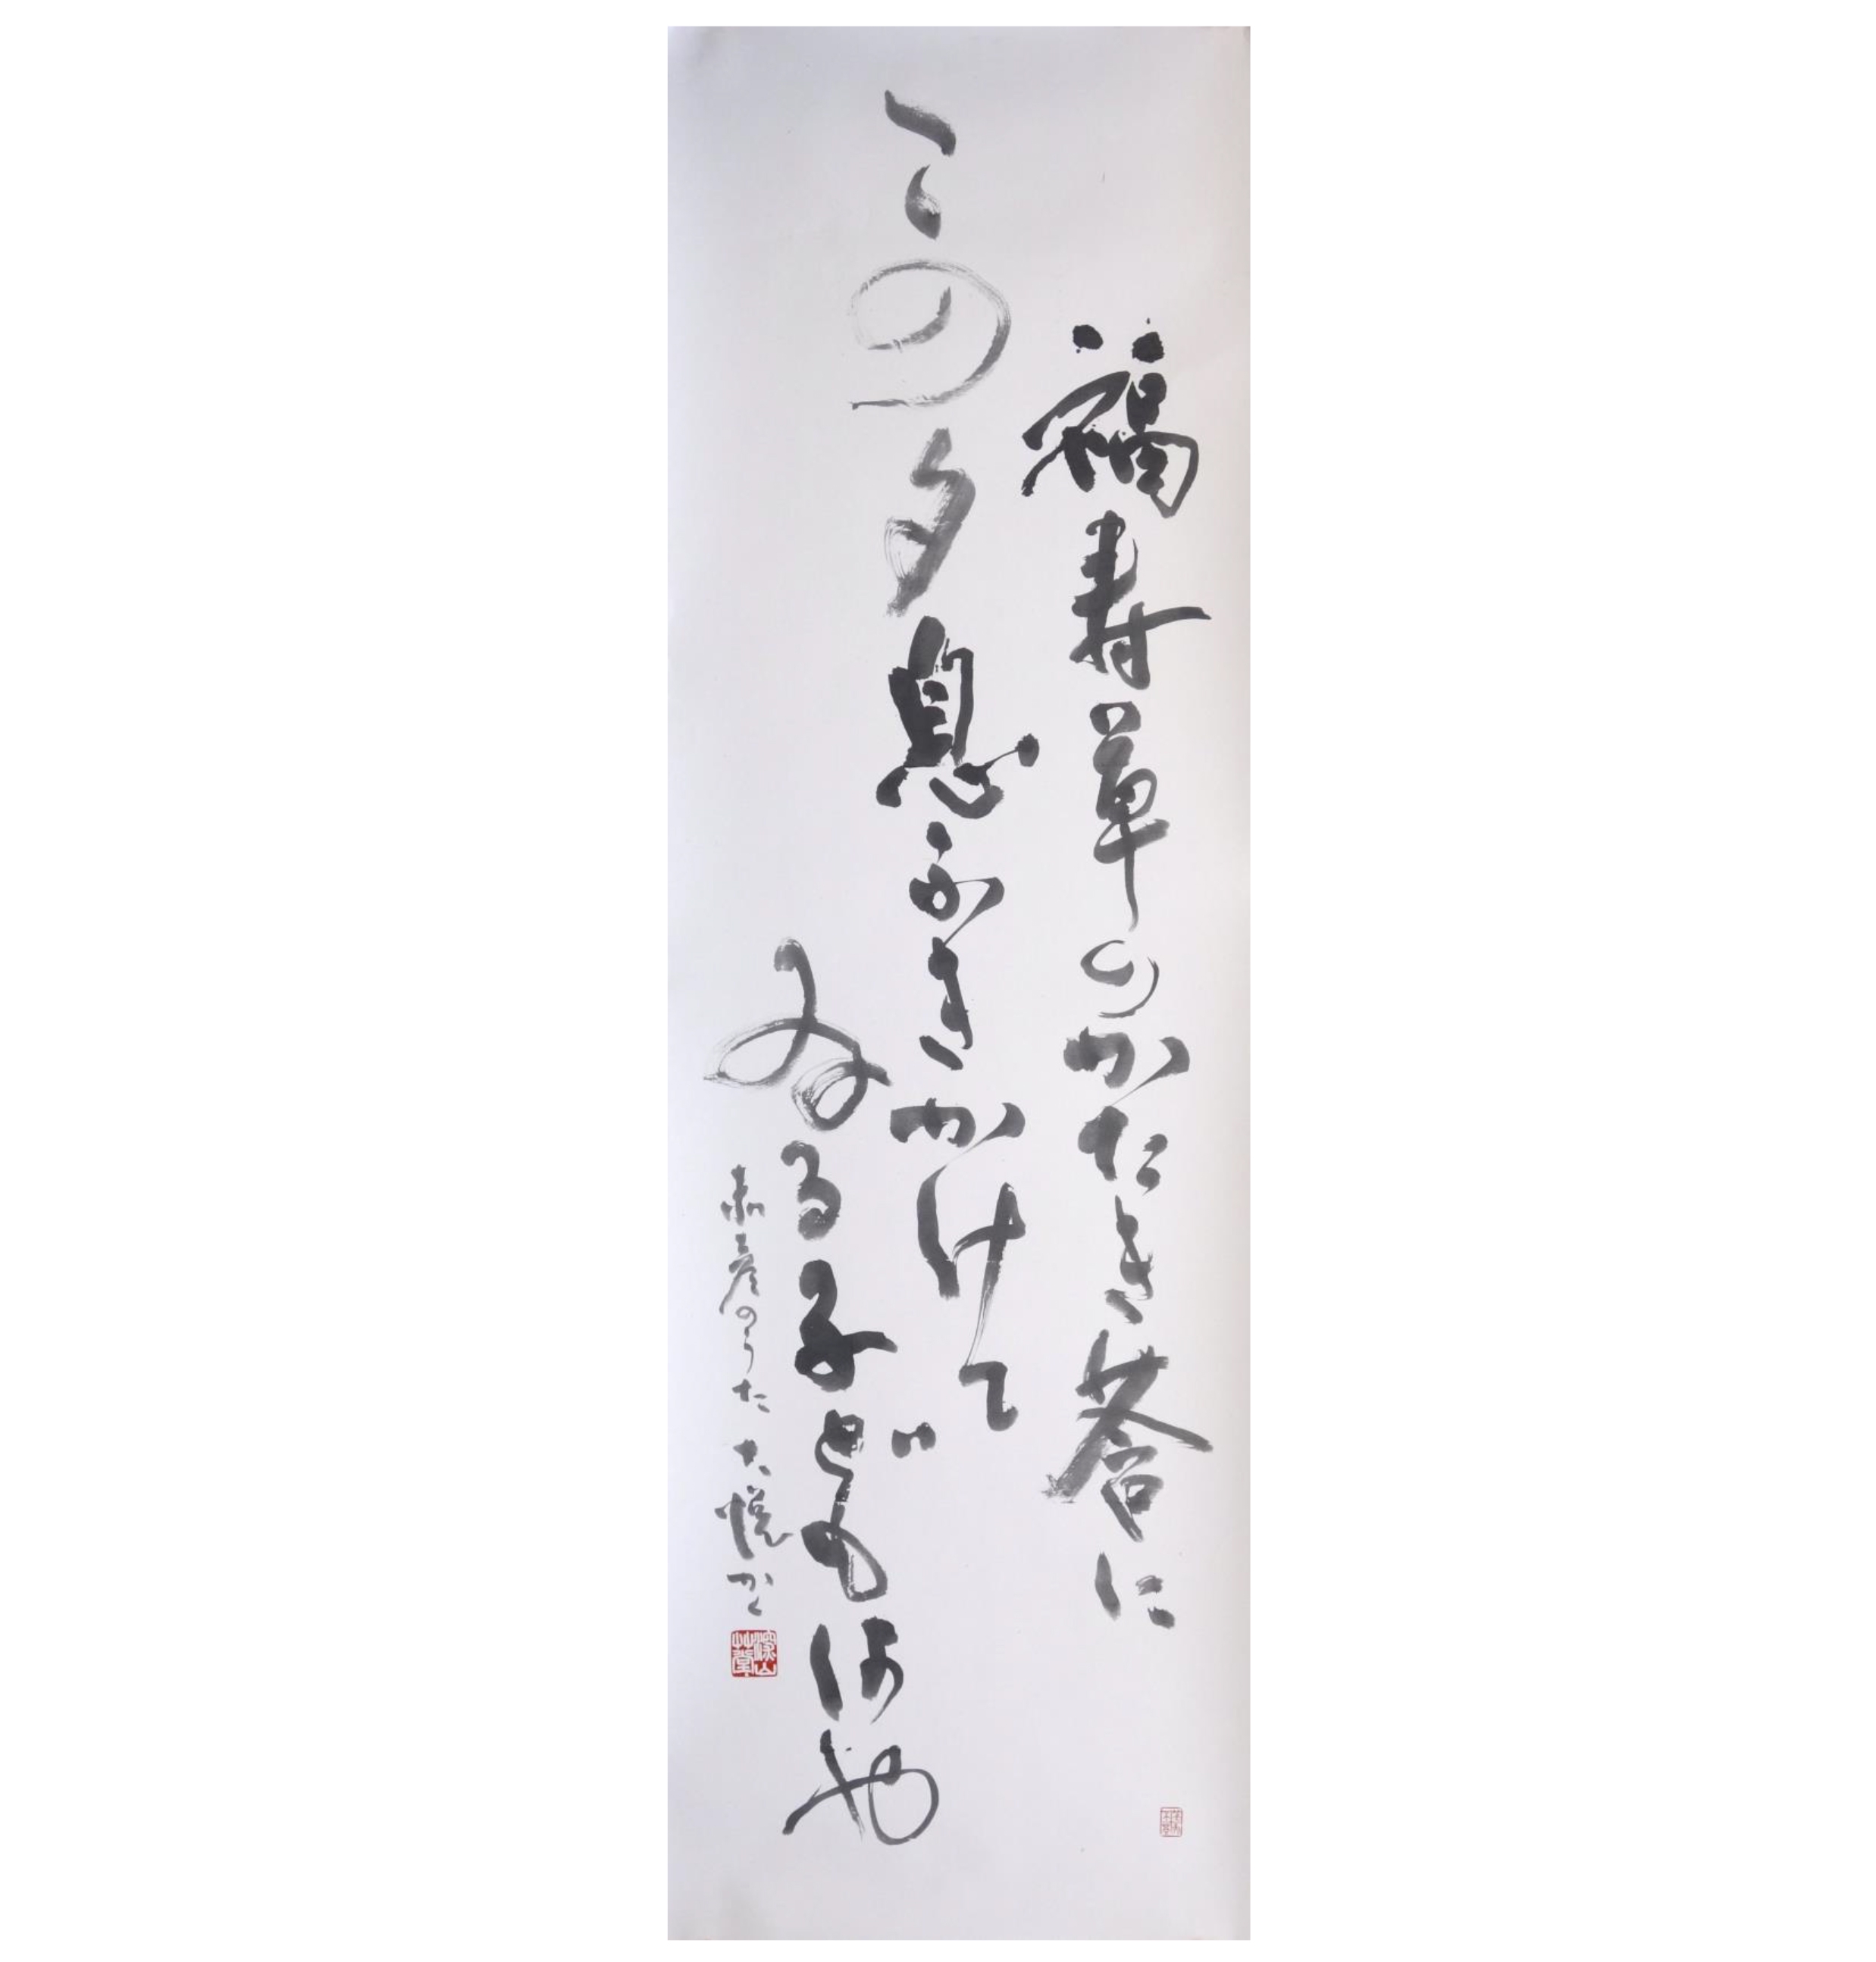 福寿草のかたき莟に
この夕息ふきかけて
ゐる子どもはや
赤彦のうた 大悦かく